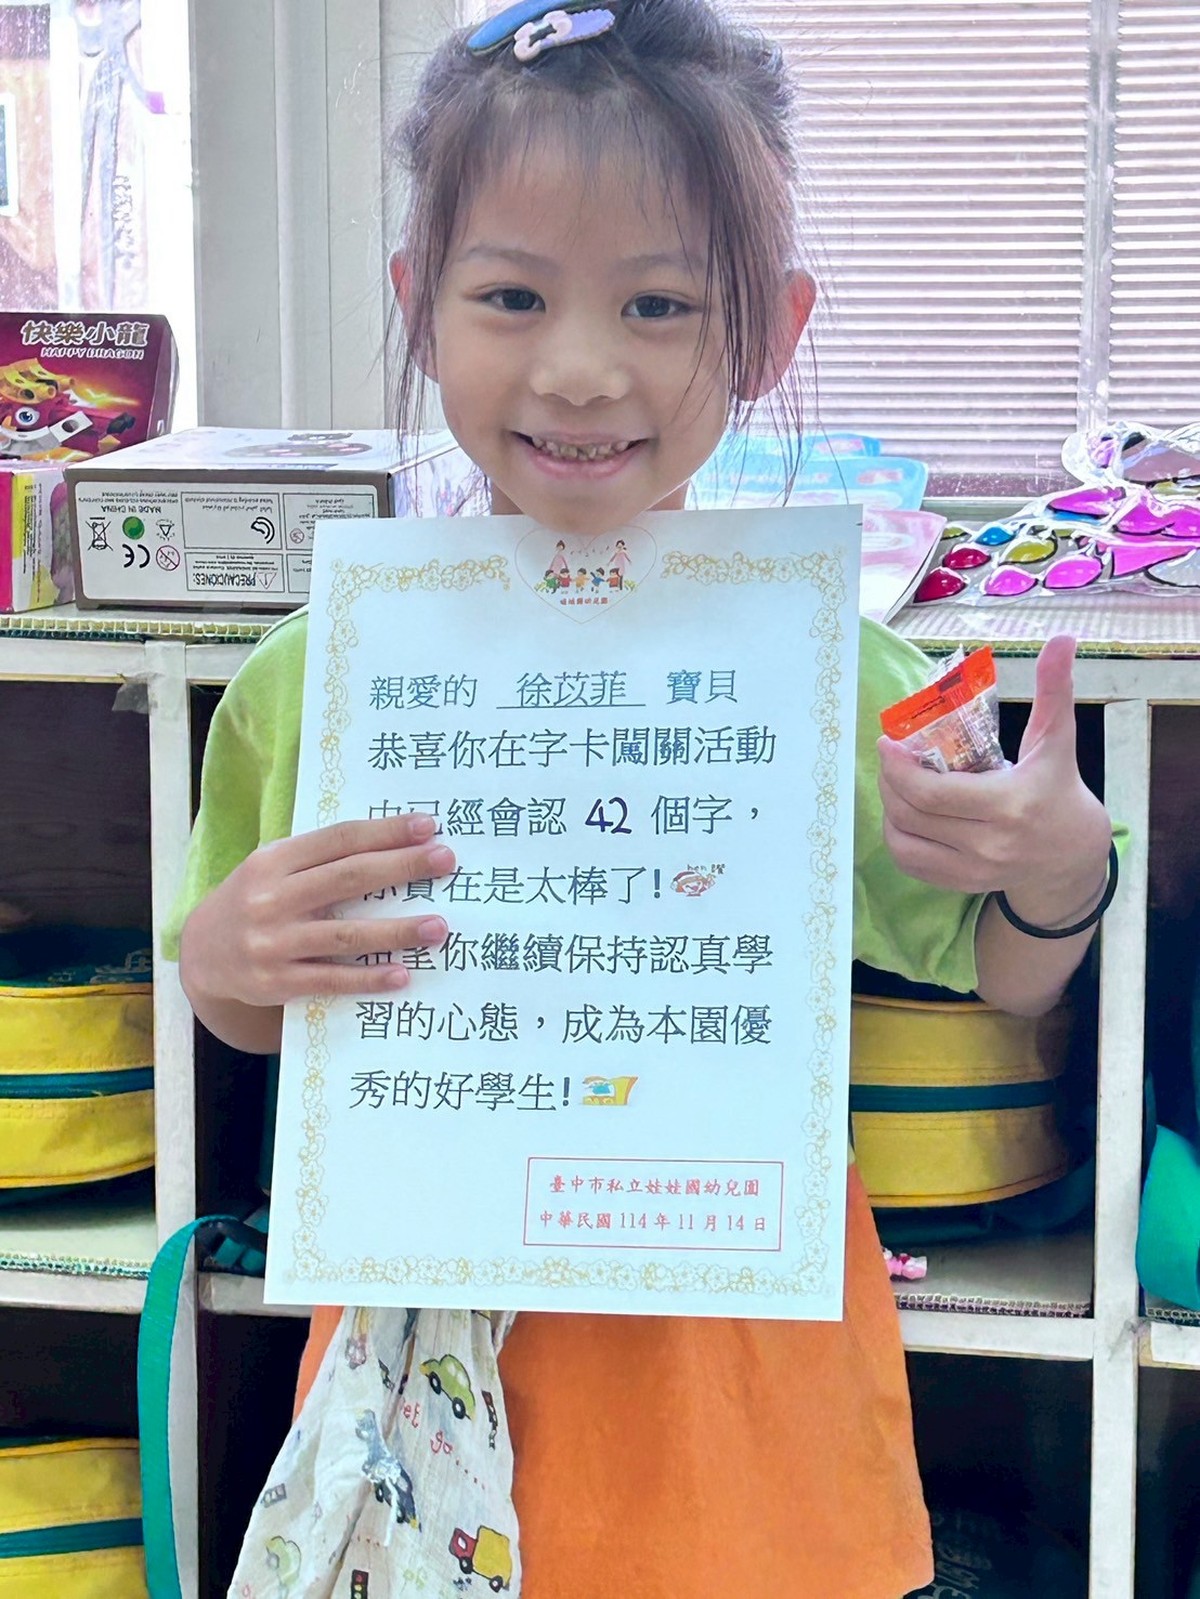 快樂小龍
HAPPY DRAGON
MADE IN CHINA
CE
PRECAUCIONES:
親愛的 徐苡菲 寶貝
恭喜你在字卡闖關活動
中已經會認 42 個字，
你實在是太棒了!
希望你繼續保持認真學
習的心態，成為本園優
秀的好學生!
臺中市私立娃娃國幼兒園
中華民國 114 年 11 月 14 日
go....